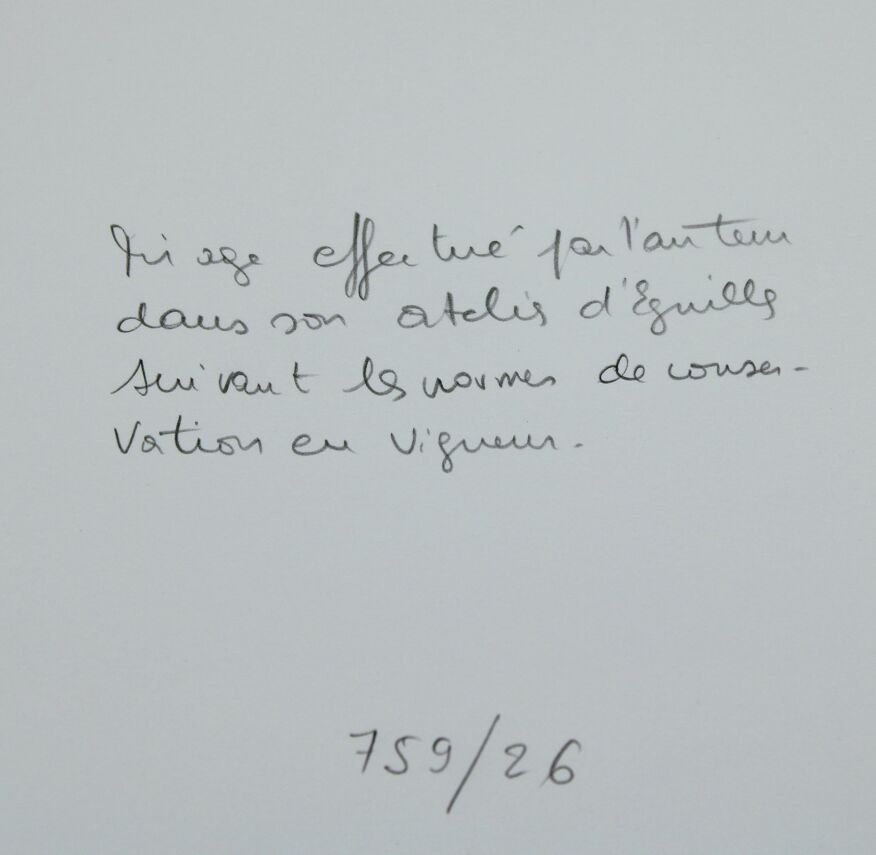 Tirage effectué par l'auteur
dans son atelier d'Eguilles
suivant les normes de conser-
vation en vigueur.
759/26